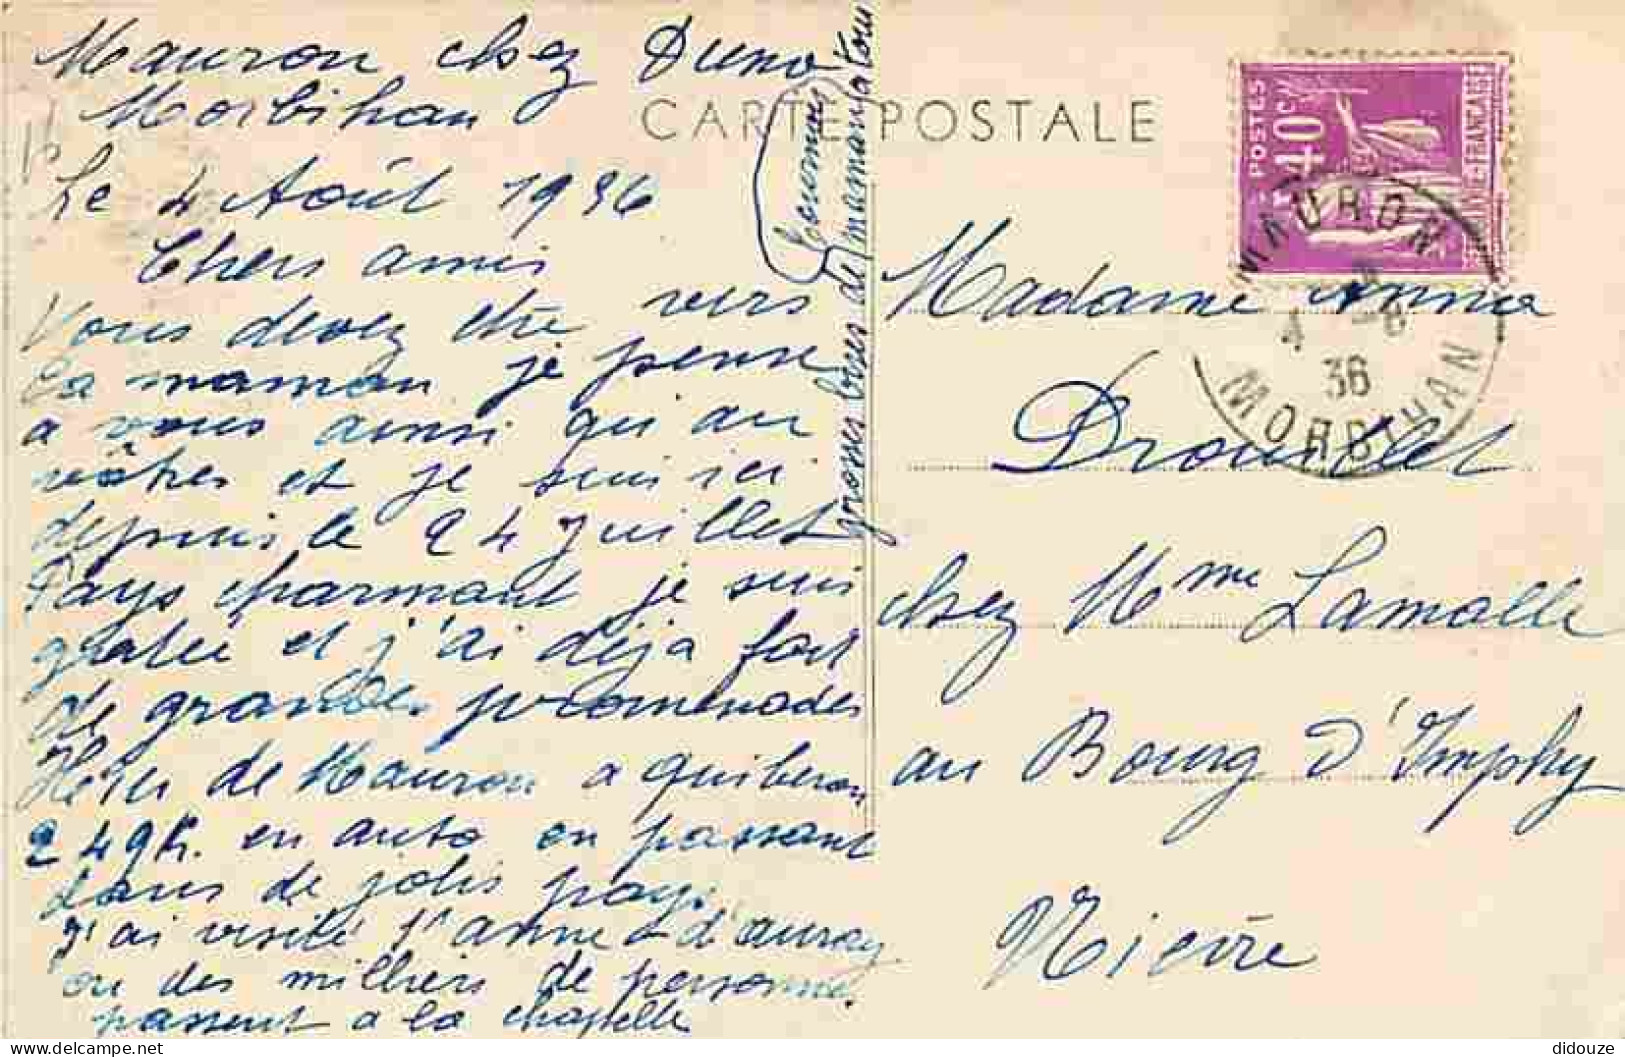 Mauron chez Duno
Morbihan
Le 4 Août 1936
Chers amis
Vous devez être vers
la maman je pense
a vous ainsi qui au
vôtres et je suis ici
depuis le 24 Juillet
Pays charmant je suis
gatée et j'ai déja fait
de grandes promenades
Hier de Mauron a quiberon
249k. en auto en passant
dans de jolis pays
J'ai visité St anne d'auray
ou des milliers de personnes
passent a la chapelle
grosses bises de maman a tous
CARTE POSTALE
POSTES
40c
RÉPUBLIQUE FRANCAISE
MAURON
4 -8
36
MORBIHAN
Madame Anna
Drouillet
chez Mme Lamalle
au Bourg d'Imphy
Nièvre
delcampe.net
didouze